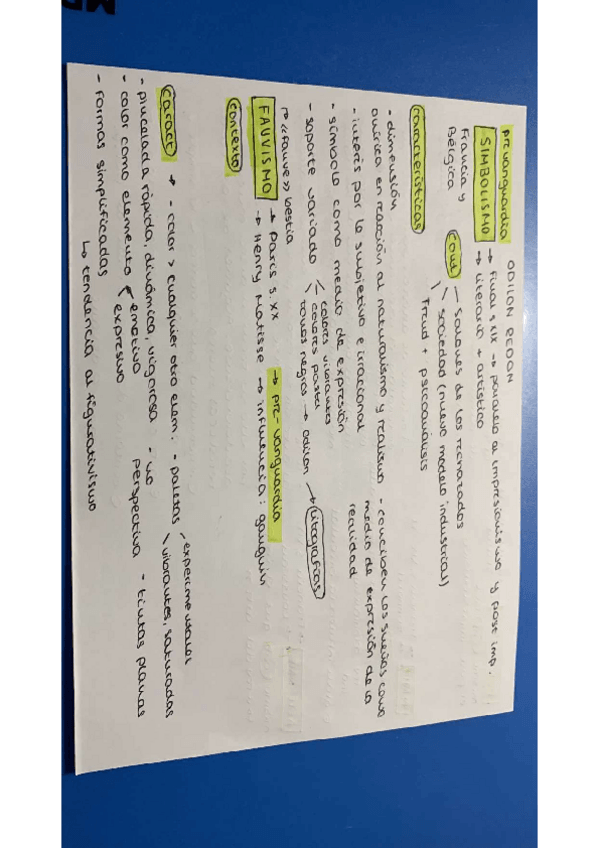 ODILON REDON
pre vanguardia
SIMBOLISMO → final s XIX → paralelo al impresionismo y post imp.
→ literario + artístico
Francia y
Bélgica
cont — Salones de los rechazados
\ sociedad (nuevo modelo industrial)
Freud + psicoanálisis
características
- dimensión
onírica en reacción al naturalismo y realismo - conciben los sueños como
medio de expresión de la
realidad
- interés por lo subjetivo e irracional
- símbolo como medio de expresión
- soporte variado < colores vibrantes
colores pastel
\ tonos negros → odilon → Litografías
↱ «fauve» bestia
FAUVISMO → parís s. XX → pre-vanguardia
→ Henry Matisse → influencia: gauguin
contexto
Caract → - color > cualquier otro elem. - paletas / experimentales
\ vibrantes, saturadas
- pincelada rápida, dinámica, vigorosa - no
perspectiva - tintas planas
- color como elemento < emotivo
expresivo
- formas simplificadas
↳ tendencia al figurativismo